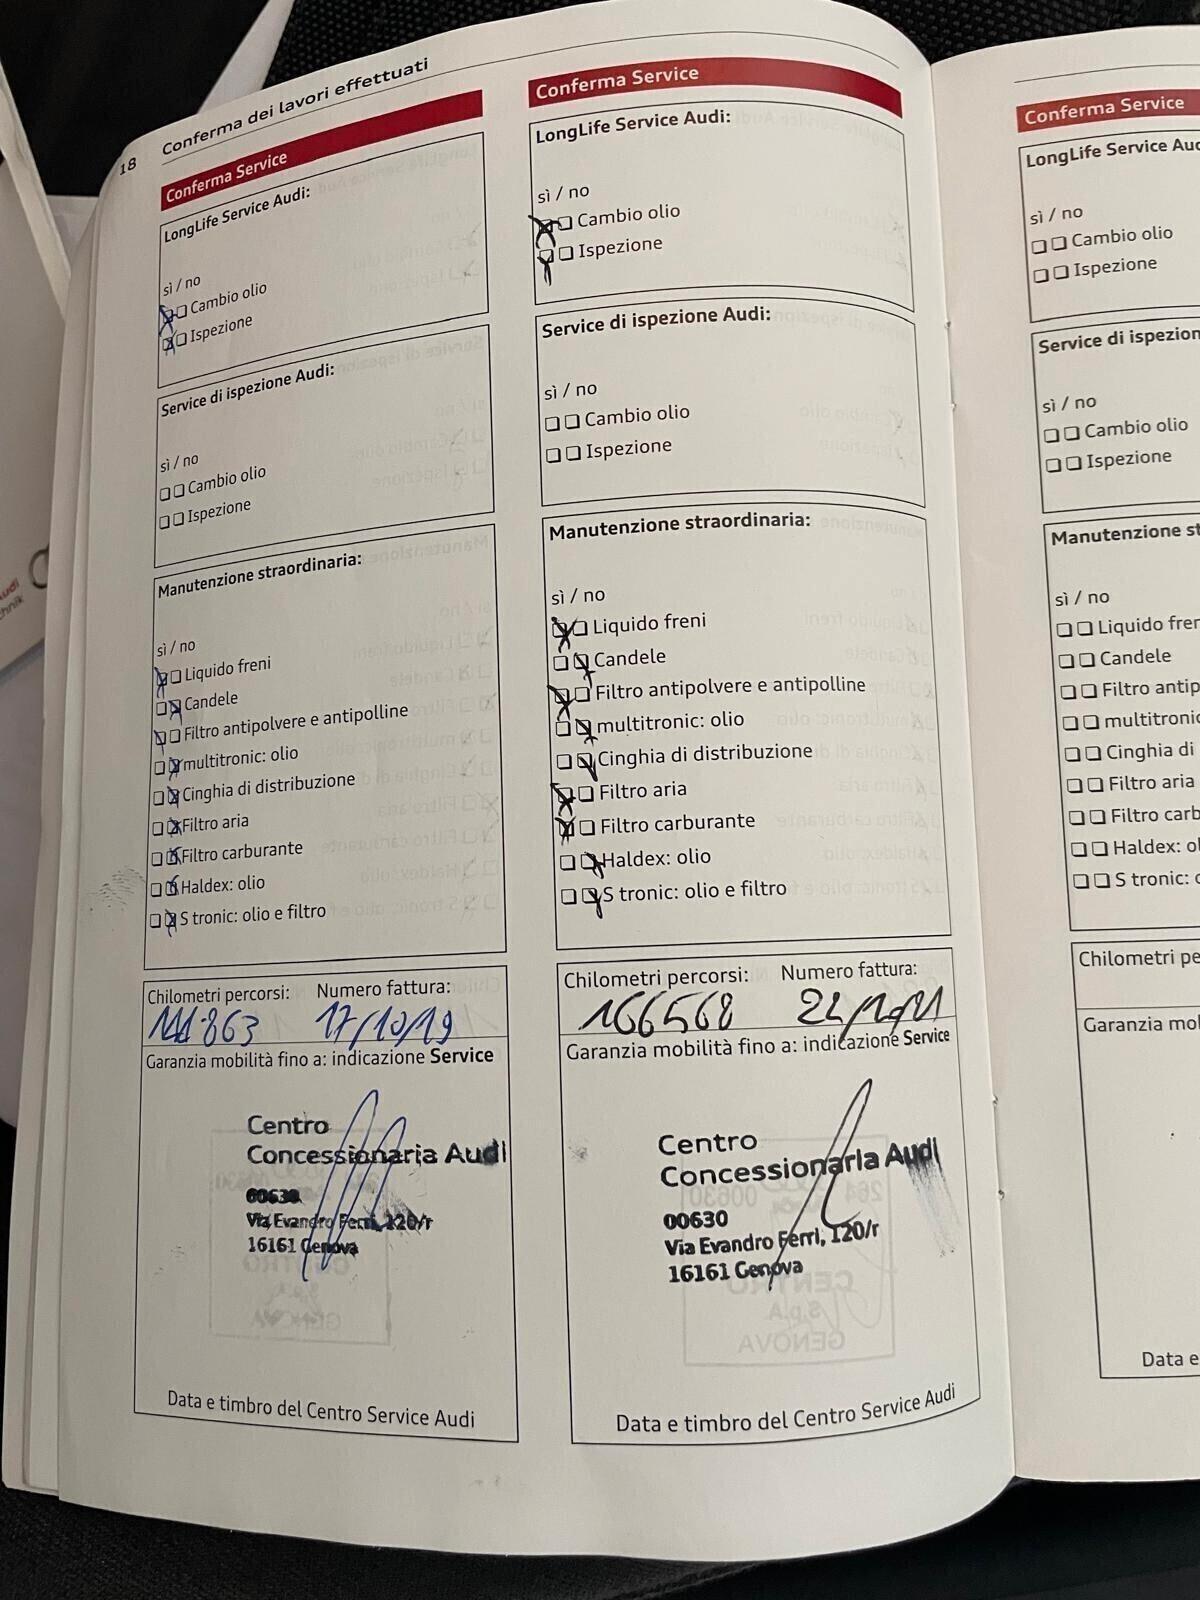 18
Conferma dei lavori effettuati
Conferma Service
LongLife Service Audi:
sì / no
Cambio olio
Ispezione
Service di ispezione Audi:
sì / no
Cambio olio
Ispezione
Manutenzione straordinaria:
sì / no
Liquido freni
Candele
Filtro antipolvere e antipolline
multitronic: olio
Cinghia di distribuzione
Filtro aria
Filtro carburante
Haldex: olio
S tronic: olio e filtro
Chilometri percorsi: Numero fattura:
111.863 17/10/19
Garanzia mobilità fino a: indicazione Service
Centro
Concessionaria Audi
00630
Via Evandro Ferri, 120/r
16161 Genova
Data e timbro del Centro Service Audi
Conferma Service
LongLife Service Audi:
sì / no
Cambio olio
Ispezione
Service di ispezione Audi:
sì / no
Cambio olio
Ispezione
Manutenzione straordinaria:
sì / no
Liquido freni
Candele
Filtro antipolvere e antipolline
multitronic: olio
Cinghia di distribuzione
Filtro aria
Filtro carburante
Haldex: olio
S tronic: olio e filtro
Chilometri percorsi: Numero fattura:
166568
Garanzia mobilità fino a: indicazione Service
Centro
Concessionaria Audi
00630
Via Evandro Ferri, 120/r
16161 Genova
Data e timbro del Centro Service Audi
Conferma Service
LongLife Service Au
sì / no
Cambio olio
Ispezione
Service di ispezion
sì / no
Cambio olio
Ispezione
Manutenzione st
sì / no
Liquido fren
Candele
Filtro antip
multitronic
Cinghia di
Filtro aria
Filtro carb
Haldex: ol
S tronic: o
Chilometri pe
Garanzia mo
Data e